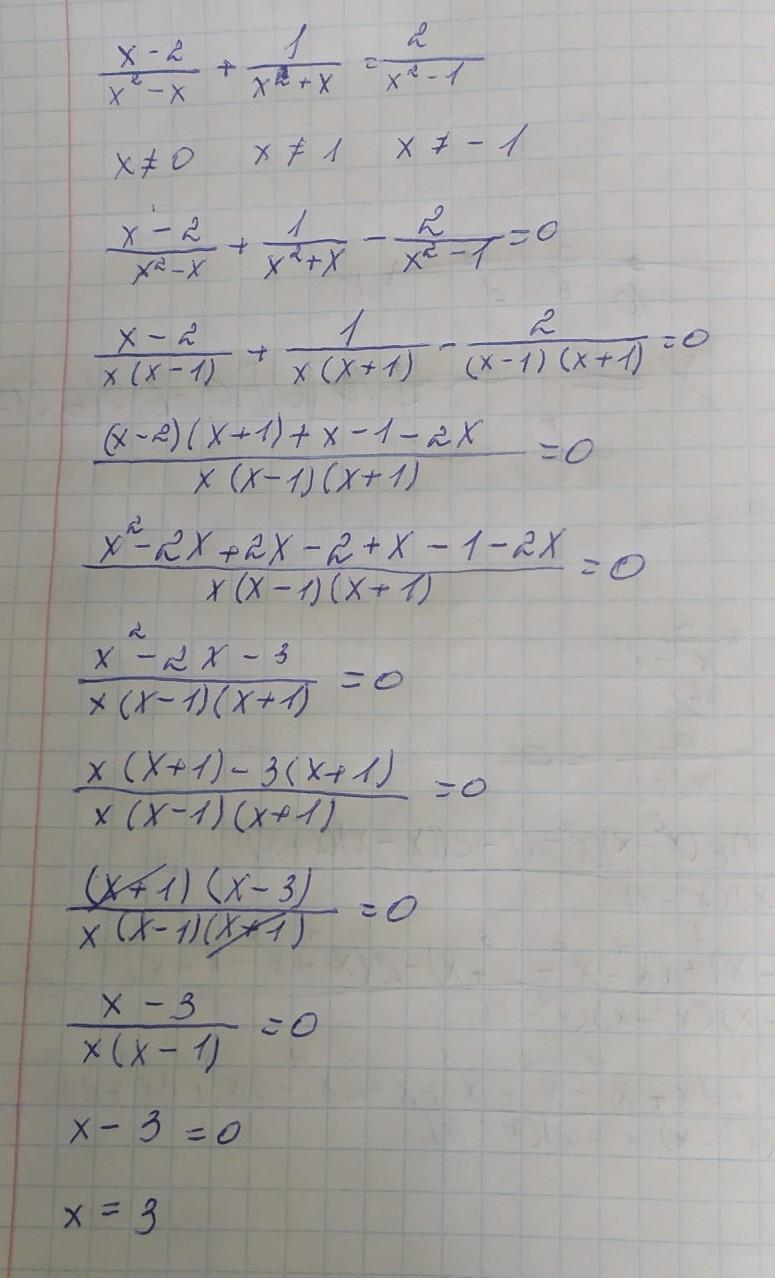 (x-2)/(x²-x) + 1/(x²+x) = 2/(x²-1)
x≠0 x≠1 x≠-1
(x-2)/(x²-x) + 1/(x²+x) - 2/(x²-1) = 0
(x-2)/(x(x-1)) + 1/(x(x+1)) - 2/((x-1)(x+1)) = 0
((x-2)(x+1)+x-1-2x)/(x(x-1)(x+1)) = 0
(x²-2x+2x-2+x-1-2x)/(x(x-1)(x+1)) = 0
(x²-2x-3)/(x(x-1)(x+1)) = 0
(x(x+1)-3(x+1))/(x(x-1)(x+1)) = 0
((x+1)(x-3))/(x(x-1)(x+1)) = 0
(x-3)/(x(x-1)) = 0
x-3=0
x=3